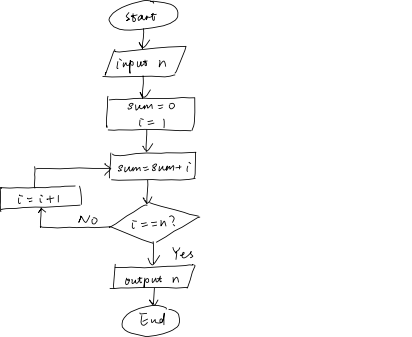 start
input n
sum = 0
i = 1
sum=sum+i
i = i+1
No
i==n?
Yes
output n
End